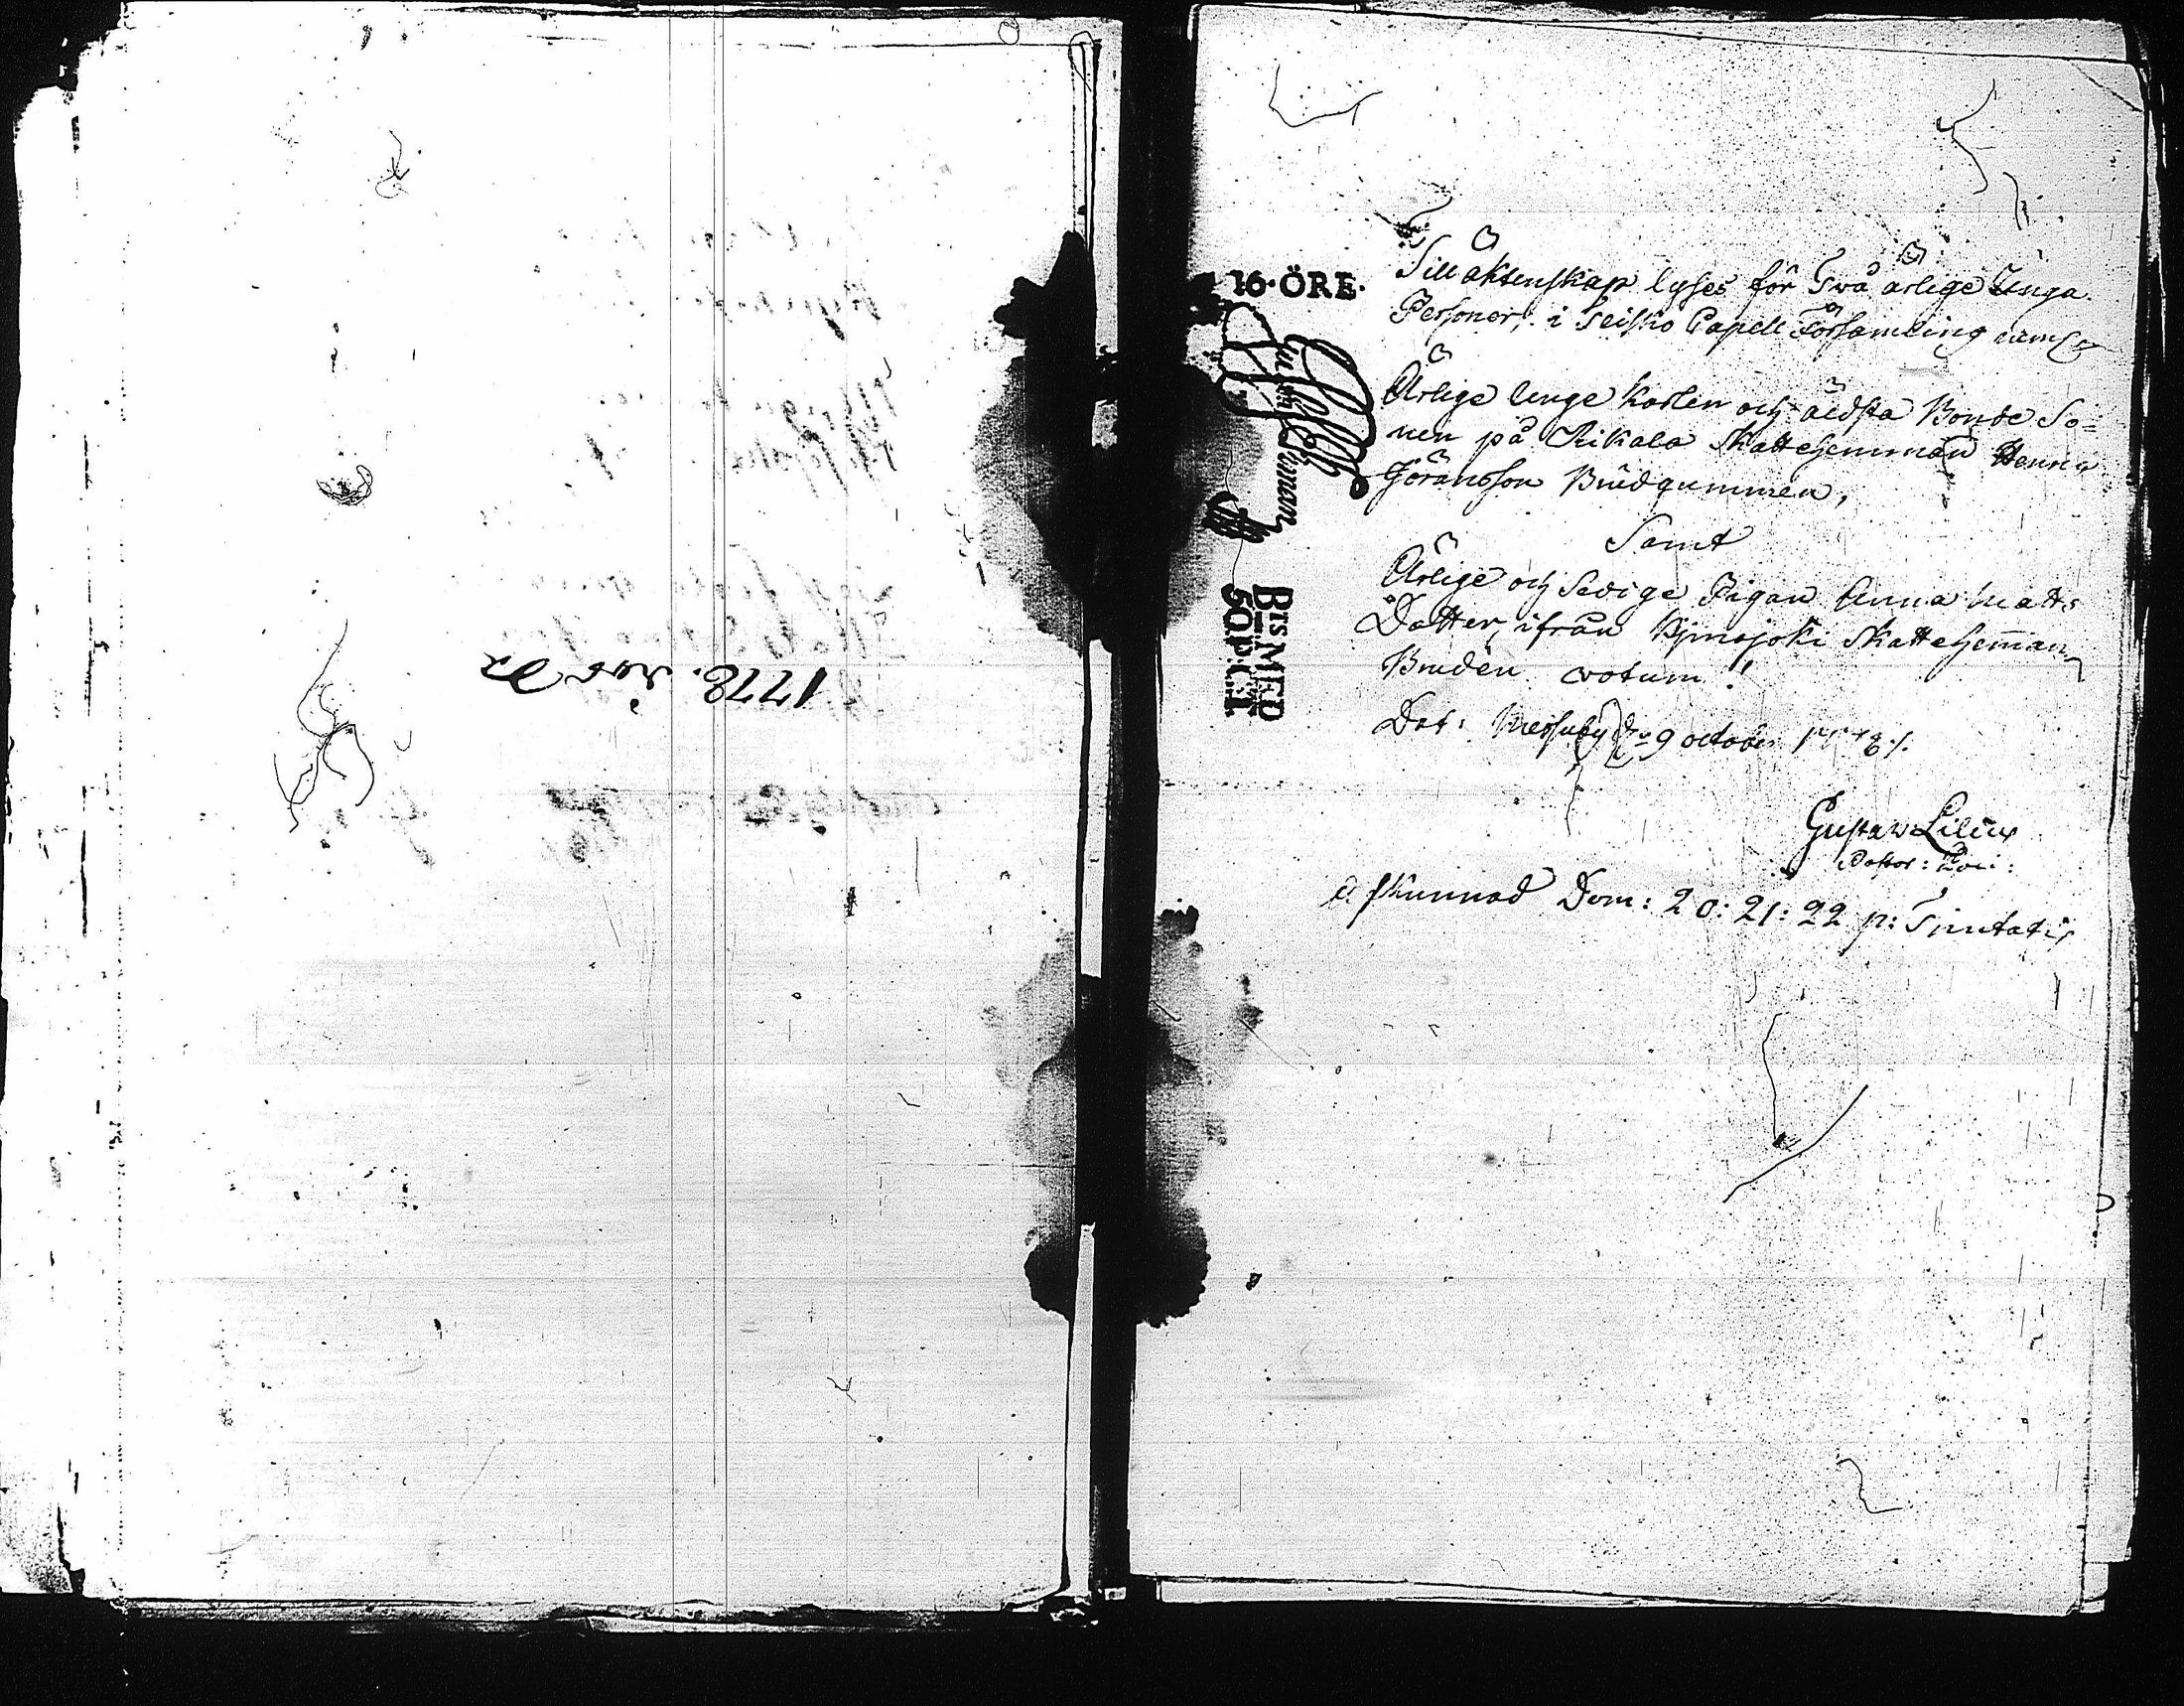 1778. N:o 32
16·ÖRE.
BTS MED
50 P:C:T.
Till äktenskap lyses för Twå ärlige Unga
Personer, i Teisko Capell Församling neml:
Ärlige Unge Karlen och äldsta Bonde So=
nen på Rikala Skattehemman Henric
Göransson Brudgummen,
Samt
Ärlige och Sedige Pigan Anna Matts
Dotter, ifrån Kjmojoki Skattehemman
Bruden votum!
Dat: Messuby d: 9 october 1778.
Gustav Lilius
Pastor: Loci:
Afkunnad Dom: 20: 21: 22 p: Trinitatis